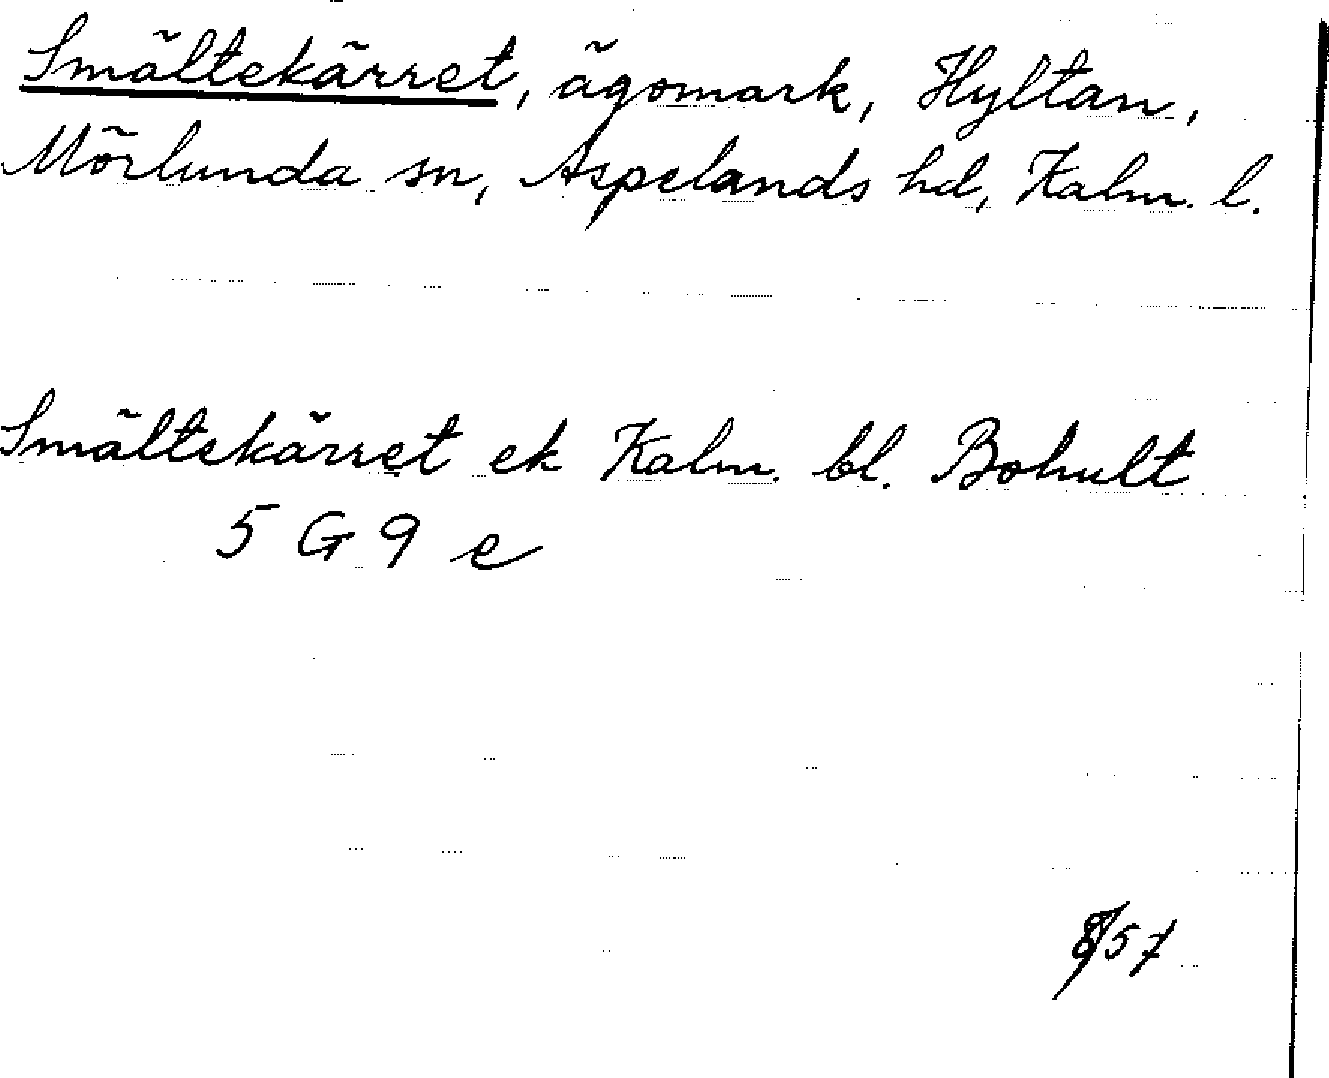 Smältekärret, ägomark, Hyltan,
Mörlunda sn, Aspelands hd, Kalm. l.
Smältekärret ek Kalm. bl. Bohult
5 G 9 e
8/57